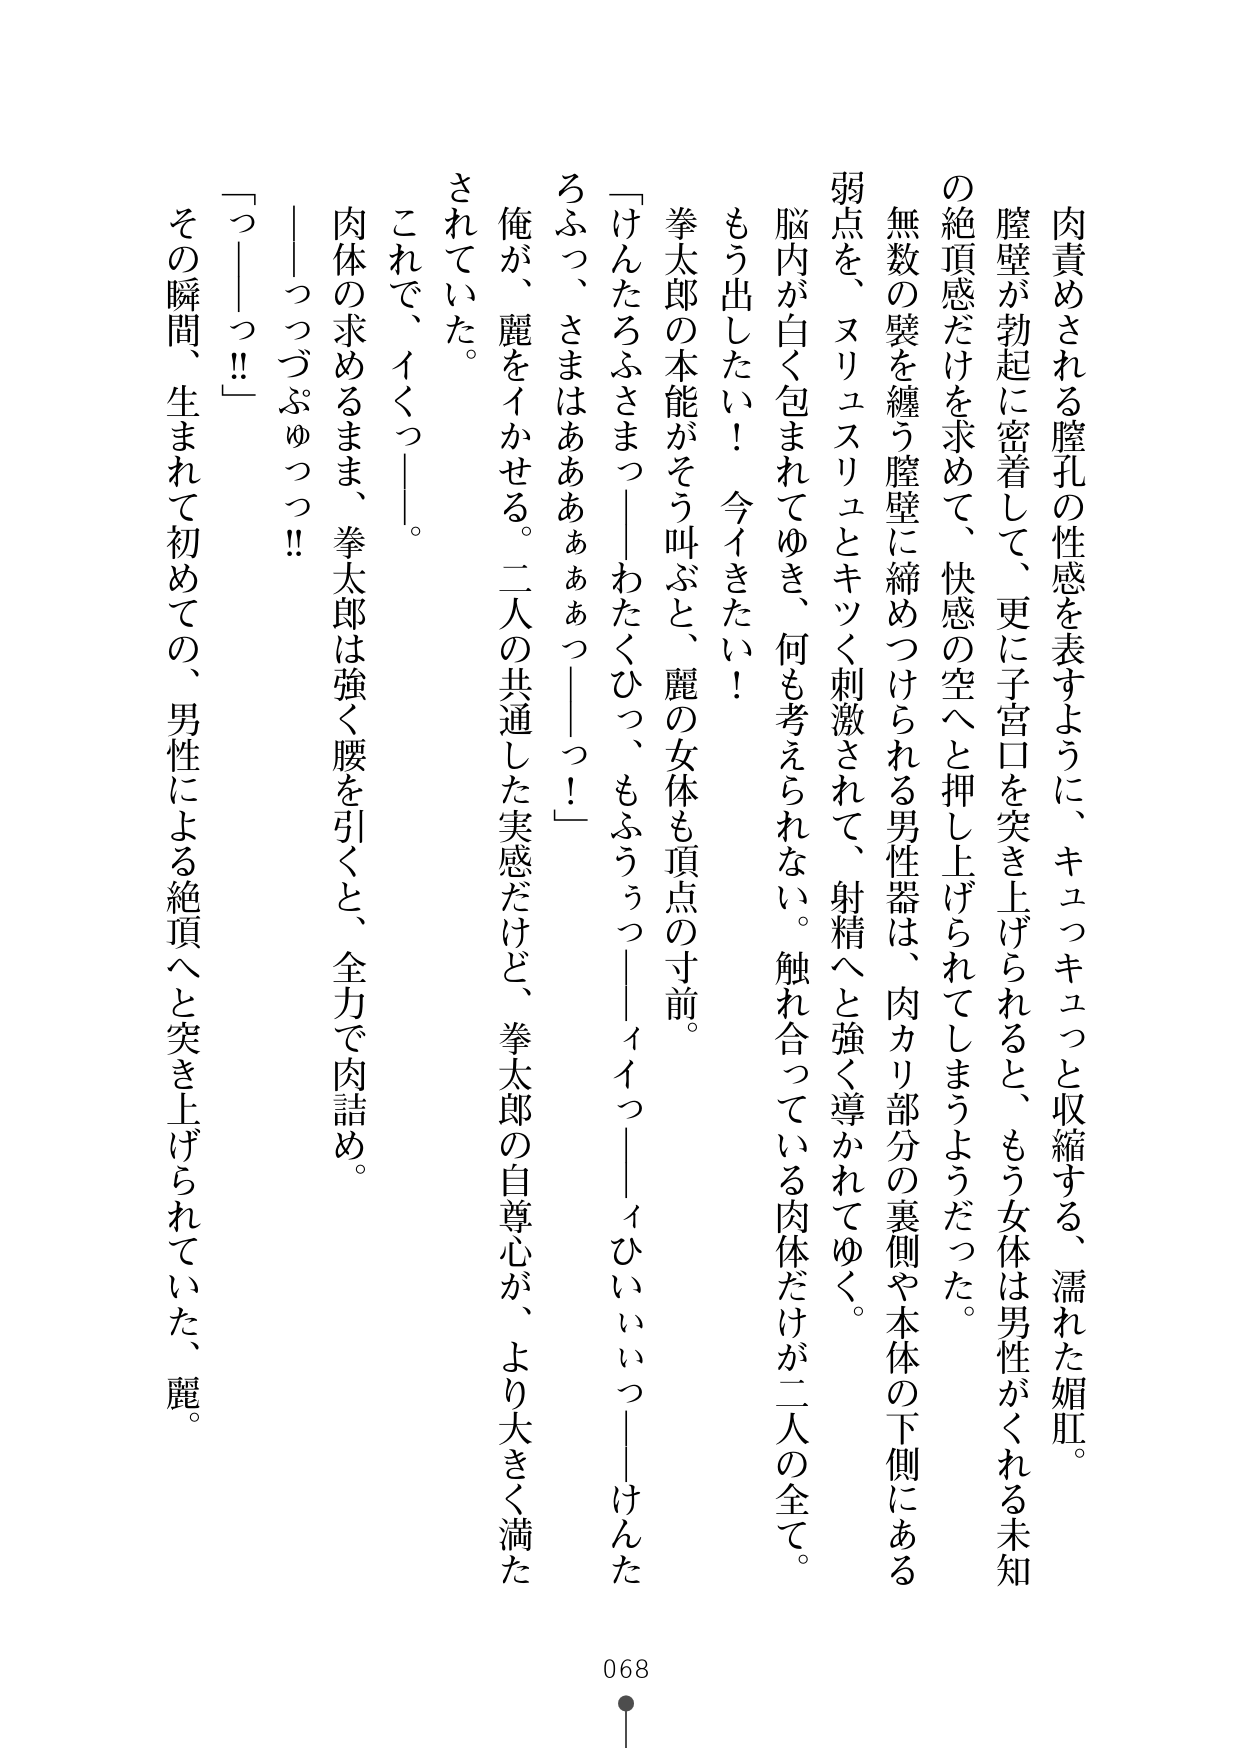 肉責めされる膣孔の性感を表すように、キュっキュっと収縮する、濡れた媚肛。
膣壁が勃起に密着して、更に子宮口を突き上げられると、もう女体は男性がくれる未知
の絶頂感だけを求めて、快感の空へと押し上げられてしまうようだった。
無数の襞を纏う膣壁に締めつけられる男性器は、肉カリ部分の裏側や本体の下側にある
弱点を、ヌリュスリュとキツく刺激されて、射精へと強く導かれてゆく。
脳内が白く包まれてゆき、何も考えられない。触れ合っている肉体だけが二人の全て。
もう出したい！　今イきたい！
拳太郎の本能がそう叫ぶと、麗の女体も頂点の寸前。
「けんたろふさまっ――わたくひっ、もふうぅっ――ィイっ――ィひいぃぃっ――けんた
ろふっ、さまはあああぁぁぁっ――っ！」
俺が、麗をイかせる。二人の共通した実感だけど、拳太郎の自尊心が、より大きく満た
されていた。
これで、イくっ――。
肉体の求めるまま、拳太郎は強く腰を引くと、全力で肉詰め。
――っっづぷゅっっ!!
「っ――っ!!」
その瞬間、生まれて初めての、男性による絶頂へと突き上げられていた、麗。
068